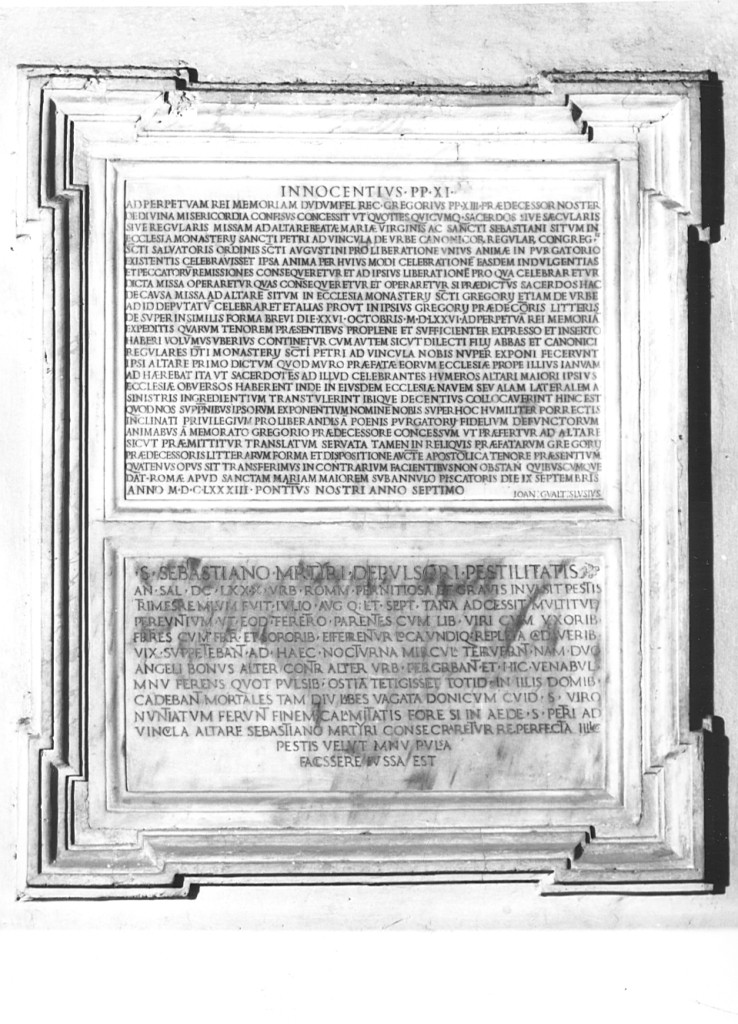 INNOCENTIVS·PP·XI·
AD PERPETVAM REI MEMORIAM DVDVM FEL REC·GREGORIVS PP·XIII·PRÆDECESSOR NOSTER
DE DIVINA MISERICORDIA CONFISVS CONCESSIT VT QVOTIES QVICVMQ·SACERDOS SIVE SÆCVLARIS
SIVE REGVLARIS MISSAM AD ALTARE BEATÆ MARIÆ VIRGINIS AC SANCTI SEBASTIANI SITVM IN
ECCLESIA MONASTERIJ SANCTI PETRI AD VINCVLA DE VRBE CANONICOR REGVLAR CONGREG·
SCTI SALVATORIS ORDINIS SCTI AVGVSTINI PRO LIBERATIONE VNIVS ANIMÆ IN PVRGATORIO
EXISTENTIS CELEBRAVISSET IPSA ANIMA PER HVIVS MODI CELEBRATIONE EASDEM INDVLGENTIAS
ET PECCATORV REMISSIONES CONSEQVERETVR ET AD IPSIVS LIBERATIONE PRO QVA CELEBRARETVR
DICTA MISSA OPERARETVR QVAS CONSEQVERETVR ET OPERARETVR SI PRÆDICTVS SACERDOS HAC
DE CAVSA MISSA AD ALTARE SITVM IN ECCLESIA MONASTERIJ SCTI GREGORIJ ETIAM DE VRBE
AD ID DEPVTATV CELEBRARET ET ALIAS PROVT IN IPSIVS GREGORIJ PRÆDECORIS LITTERIS
DE SVPER IN SIMILIS FORMA BREVI DIE·XXVI·OCTOBRIS·M·D·LXXVI·AD PERPETVA REI MEMORIA
EXPEDITIS QVARVM TENOREM PRÆSENTIBVS PRO PLENE ET SVFFICIENTER EXPRESSO ET INSERTO
HABERI VOLVMVS VBERIVS CONTINETVR CVM AVTEM SICVT DILECTI FILIJ ABBAS ET CANONICI
REGVLARES DTI MONASTERIJ SCTI PETRI AD VINCVLA NOBIS NVPER EXPONI FECERVNT
IPSI ALTARE PRIMO DICTVM QVOD MVRO PRÆFATÆ EORVM ECCLESIÆ PROPE ILLIVS IANVAM
AD HÆREBAT ITA VT SACERDOTES AD ILLVD CELEBRANTES HVMEROS ALTARI MAIORI IPSIVS
ECCLESIÆ OBVERSOS HABERENT INDE IN EIVSDEM ECCLESIÆ NAVEM SEV ALAM LATERALEM A
SINISTRIS INGREDIENTIVM TRANSTVLERINT IBIQVE DECENTIVS COLLOCAVERINT HINC EST
QVOD NOS SVPPNIBVS IPSORVM EXPONENTIVM NOMINE NOBIS SVPER HOC HVMILITER PORRECTIS
INCLINATI PRIVILEGIVM PRO LIBERANDIS A POENIS PVRGATORIJ FIDELIVM DEFVNCTORVM
ANIMABVS A MEMORATO GREGORIO PRÆDECESSORE CONCESSVM VT PRÆFERTVR AD ALTARE
SICVT PRÆMITTITVR TRANSLATVM SERVATA TAMEN IN RELIQVIS PRÆFATARVM GREGORIJ
PRÆDECESSORIS LITTERARVM FORMA ET DISPOSITIONE AVCTE APOSTOLICA TENORE PRÆSENTIVM
QVATENVS OPVS SIT TRANSFERIMVS IN CONTRARIVM FACIENTIBVS NON OBSTAN QVIBVSCVMQVE
DAT·ROMÆ APVD SANCTAM MARIAM MAIOREM SVB ANNVLO PISCATORIS DIE IX SEPTEMBRIS
ANNO M·D·C·LXXXIII·PONTIVS NOSTRI ANNO SEPTIMO
IOAN·GVALT·SLVSIVS
·S·SEBASTIANO·MRTYRI·DEPVLSORI·PESTILITATIS
AN·SAL·DC·LXXX VRB·ROMM·PERNITIOSA ET GRAVIS INVASIT PESTIS
TRIMESRE MLVM FVIT·IVLIO·AVG Q·ET·SEPT·TANA AD CESSIT MVLTITVD
PEREVNTIVM·VT·EOD·FERERO·PARENTES CVM LIB·VIRI CVM VXORIB
FRRES CVM FRR·ET SORORIB·EFFERENTVR LOCA VNDIQ·REPLETA CADAVERIB
VIX·SVPPETEBAN·AD·HAEC·NOCTVRNA MIRCVL·TERRVERN·NAM·DVO
ANGELI BONVS ALTER·CONR ALTER VRB·PERGRBAN·ET·HIC·VENABVL
MNV FERENS QVOT PVLSIB·OSTIA TETIGISSET TOTID·IN ILLIS DOMIB·
CADEBAN MORTALES TAM DIV LBES VAGATA DONICVM CVID·S·VIRO
NVNIATVM FERVN FINEM CALMITATIS FORE SI IN AEDE·S·PETRI AD
VINCLA ALTARE SEBASTIANO MRTYRI CONSECRARETVR RE PERFECTA ILLIC
PESTIS VELVT MNV PVLA
FACSSERE IVSSA EST